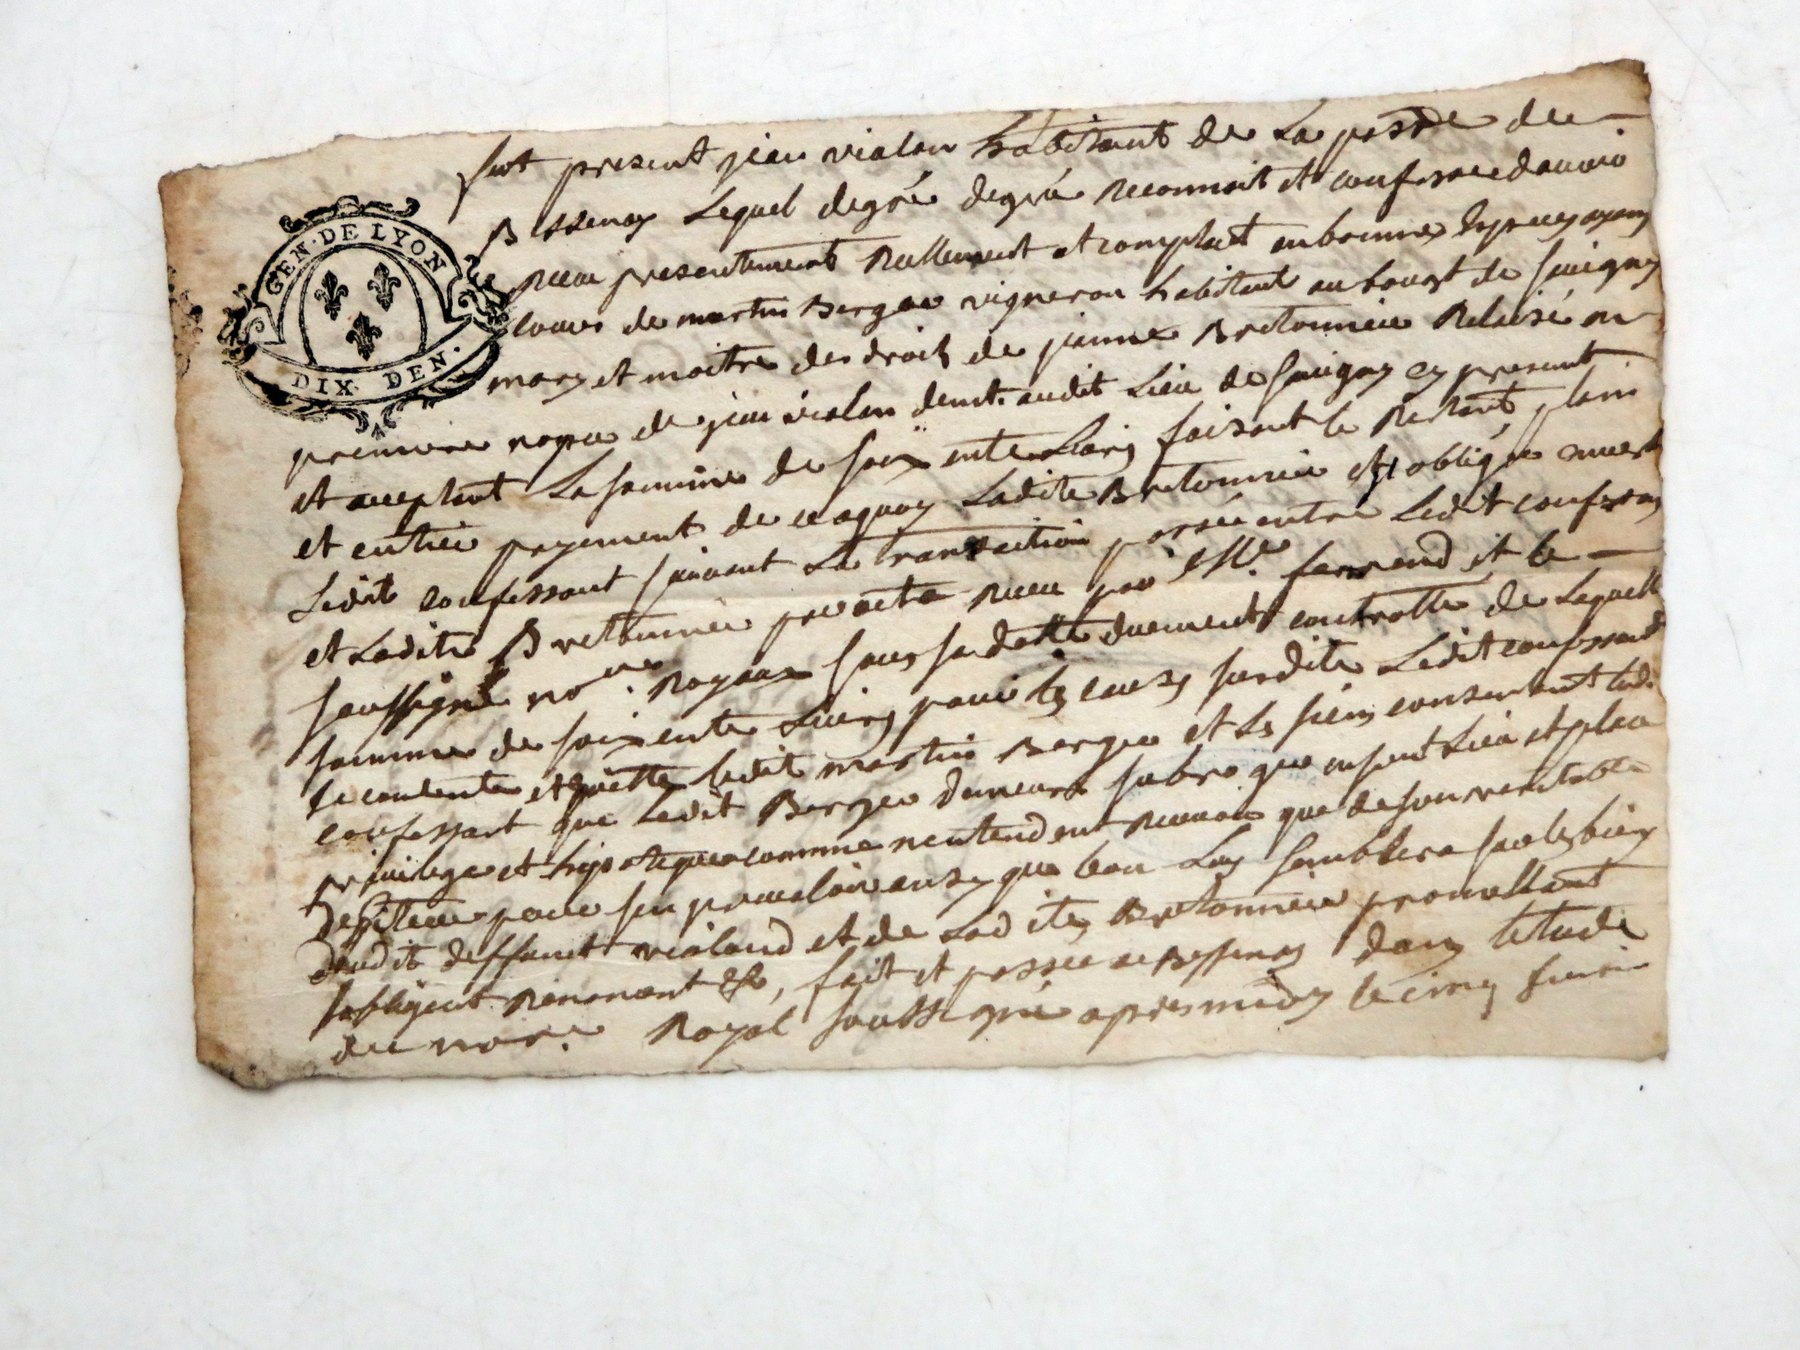 GEN. DE LYON
DIX. DEN.
fut present jean vialon habitant de La parsse de
Bessenay Lequel de gré degré Reconnoit et confesse davoir
Receu presentement Reellement et comptant en bonnes Especes ayant
cours de martin Berger vigneron habitant au bourg de savigny
mary et maitre des droits de jeanne Bretonnier Relaissé en
premiere nopce de jean vialon demt. audit Lieu de savigny cy present
et acceptant La somme de soixente Livres faisant le Restant, plain
et entier payement de ce aquoy Ladite Bretonnier est obligée envers
Ledit confessant suivant La transaction passée entre Ledit confessant
et Ladite Bretonnier par acte Receu par Me. ferrand et le
soussigné nore. Royaux sous sa datte duement controllé de Laquelle
somme de soixente Livres pour les causes susdite Ledit confessant
se contente et quitte Ledit martin Berger et Les siens consentant Led.
confessant que Ledit Berger demeure subrogé en son Lieu et place
privilege et hypoteque comme nentendent Recevoir que de son veritable
debiteur pour sen prevaloir ainsy que bon Luy semblera sur les biens
dudit deffunt vialand et de Ladite Bretonnier promettant
obligeant Renonçant &c, fait et passé a Bessenay dans letude
du nore. Royal soussigné apres midy le cinq fevrier